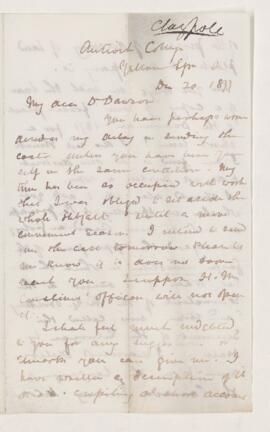 Claypole
Antioch College
Yellow Spr
Dec 20. 1877
My dear Dr Dawson
You have perhaps won
dered at my delay in sending the
casts unless you have been your
self in the same
time has been so occupied with work
that I was obliged to set aside the
whole subject until a more
convenient season. I intend to send
on the case tomorrow. Please let
me know if it does not soon
reach you I suppose the
officers will not open
it.
I shall feel much indebted
to you for any suggestions or
remarks you can give me. I
have written a description of it